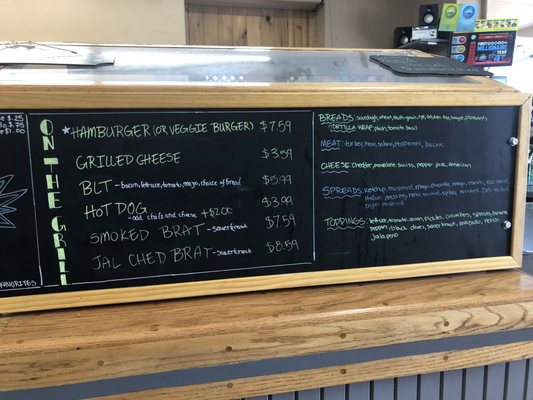 $.25
$.75
$1.25
FAVORITES
ON THE GRILL
*HAMBURGER (OR VEGGIE BURGER) $7.59
GRILLED CHEESE $3.59
BLT - bacon, lettuce, tomato, mayo, choice of bread $5.99
HOT DOG $3.99
- add chili and cheese +$2.00
SMOKED BRAT - sauerkraut $7.59
JAL CHED BRAT - sauerkraut $8.59
BREADS: sourdough, wheat, multi-grain, rye,
TORTILLA WRAP: plain, tomato basil
MEAT: turkey, ham, salami, pepperoni, bacon
CHEESE: cheddar, provolone, swiss, pepper jack, american
SPREADS: ketchup, mustard, mayo, chipotle mayo, ranch,
Italian dressing,
dijon mustard
TOPPINGS: lettuce, tomato, onion, pickles, cucumbers, sprouts, banana
peppers, black olives, sauerkraut, avocado, relish
jalapeno